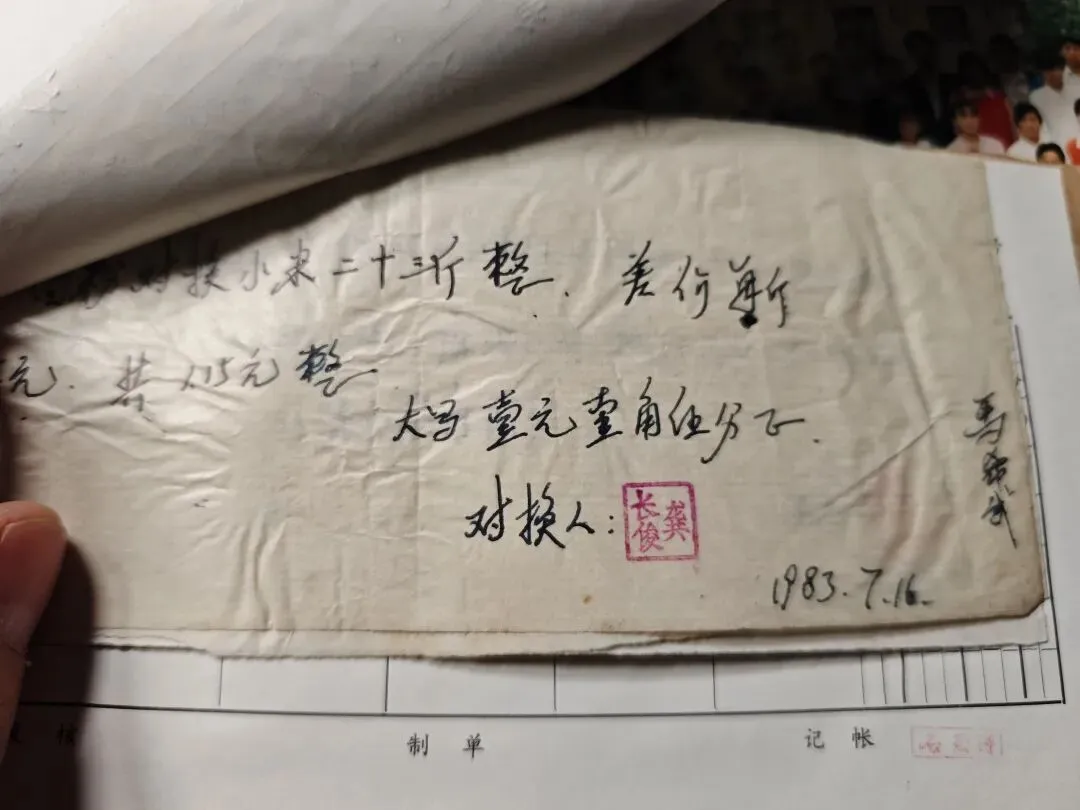 对换小米二十三斤整. 差价暂
元. 共1.15元整
大写壹元壹角伍分正.
对换人:
龚长俊
1983.7.16.
马
制单
记帐